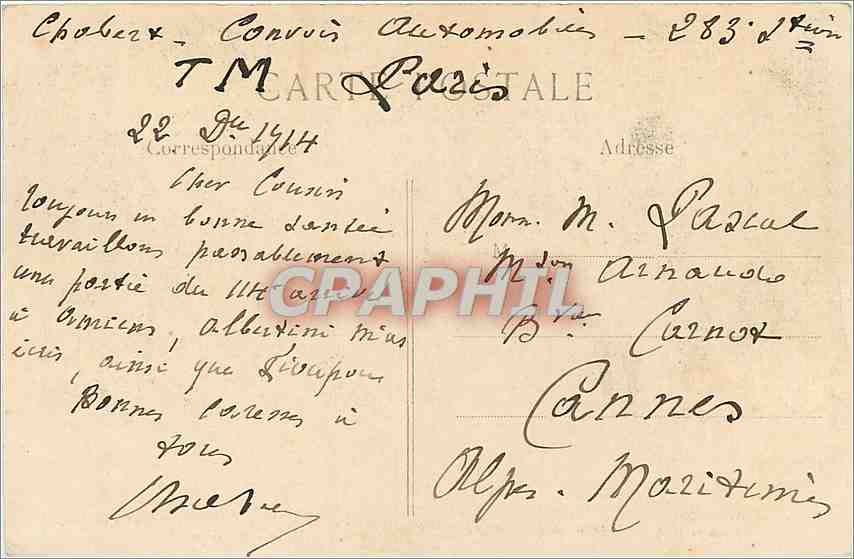 Chabert - Convois Automobiles - 283.
TM Paris
CARTE POSTALE
22 1914
Correspondance
Adresse
Cher Cousin
toujours en bonne santée
travaillons passablement
une partie du
à Amiens, Albertini m'as
, ainsi que
Bonnes caresses à
tous
Chabert
Monn. M. Pascal
Mson Arnaudo
Bvar Carnot
Cannes
Alpes. Maritimes
CPAPHIL